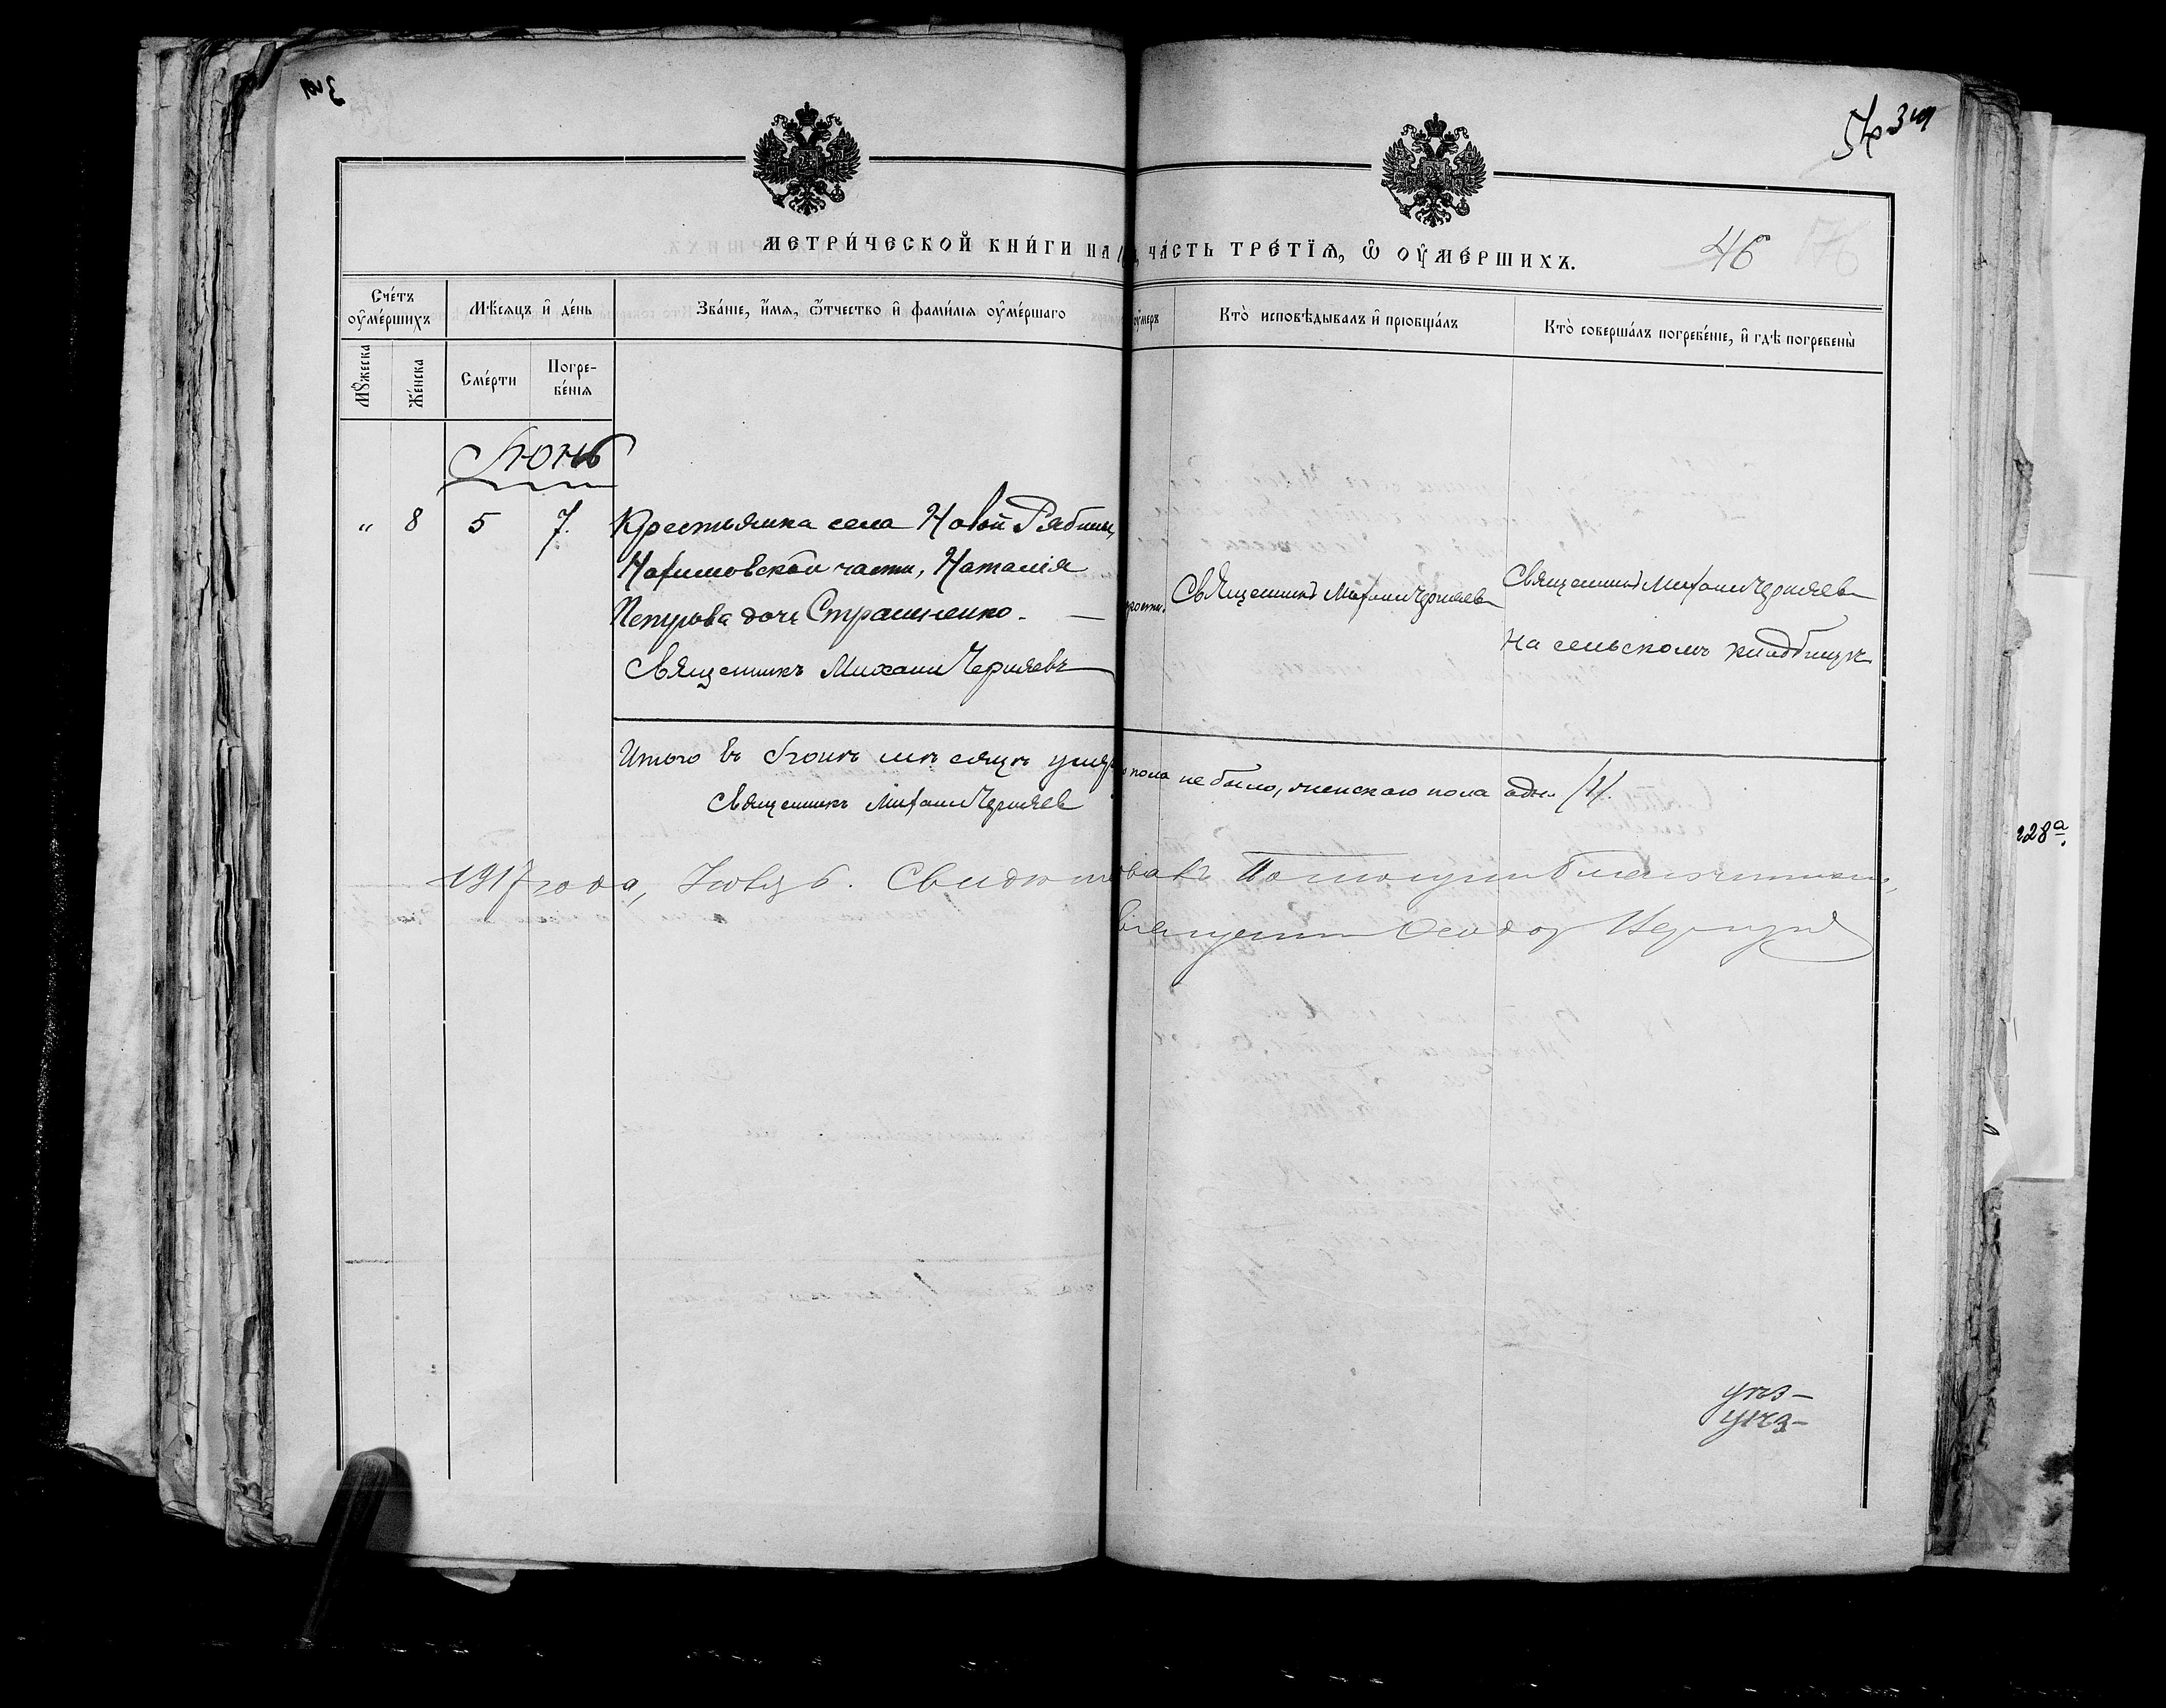 МЕТРИ́ЧЕСКОЙ КНИ́ГИ НА
ЧА́СТЬ ТРЕ́ТЇѦ, Ѽ ОУ҆МЕ́РШИХЪ.
46
Сче́тъ оу҆ме́ршихъ
Мѣ́сѧцъ и҆ де́нь
Зва́нїе, и҆́мѧ, ѻ҆́тчество и҆ фами́лїѧ оу҆ме́ршаго
Кто̀ исповѣ́дывалъ и҆ прїобща́лъ
Кто̀ соверша́лъ погребе́нїе, и҆ гдѣ̀ погребены̀
Мꙋ́жеска
Же́нска
Сме́рти
Погребе́нїѧ
Іюнь
„ 8 5 7. Крестьянка села Новой Рябины,
части, Наталія
Петрова дочь Страшненко.
Священникъ Михаилъ Черняевъ
Священникъ Михаилъ Черняевъ
Священникъ Михаилъ Черняевъ
На сельскомъ кладбищѣ.
Итого въ Іюнѣ мѣсяцѣ
пола не было, женскаго пола одна /1/.
Священникъ Михаилъ Черняевъ
1917 года,
6. Свидѣт
228а.